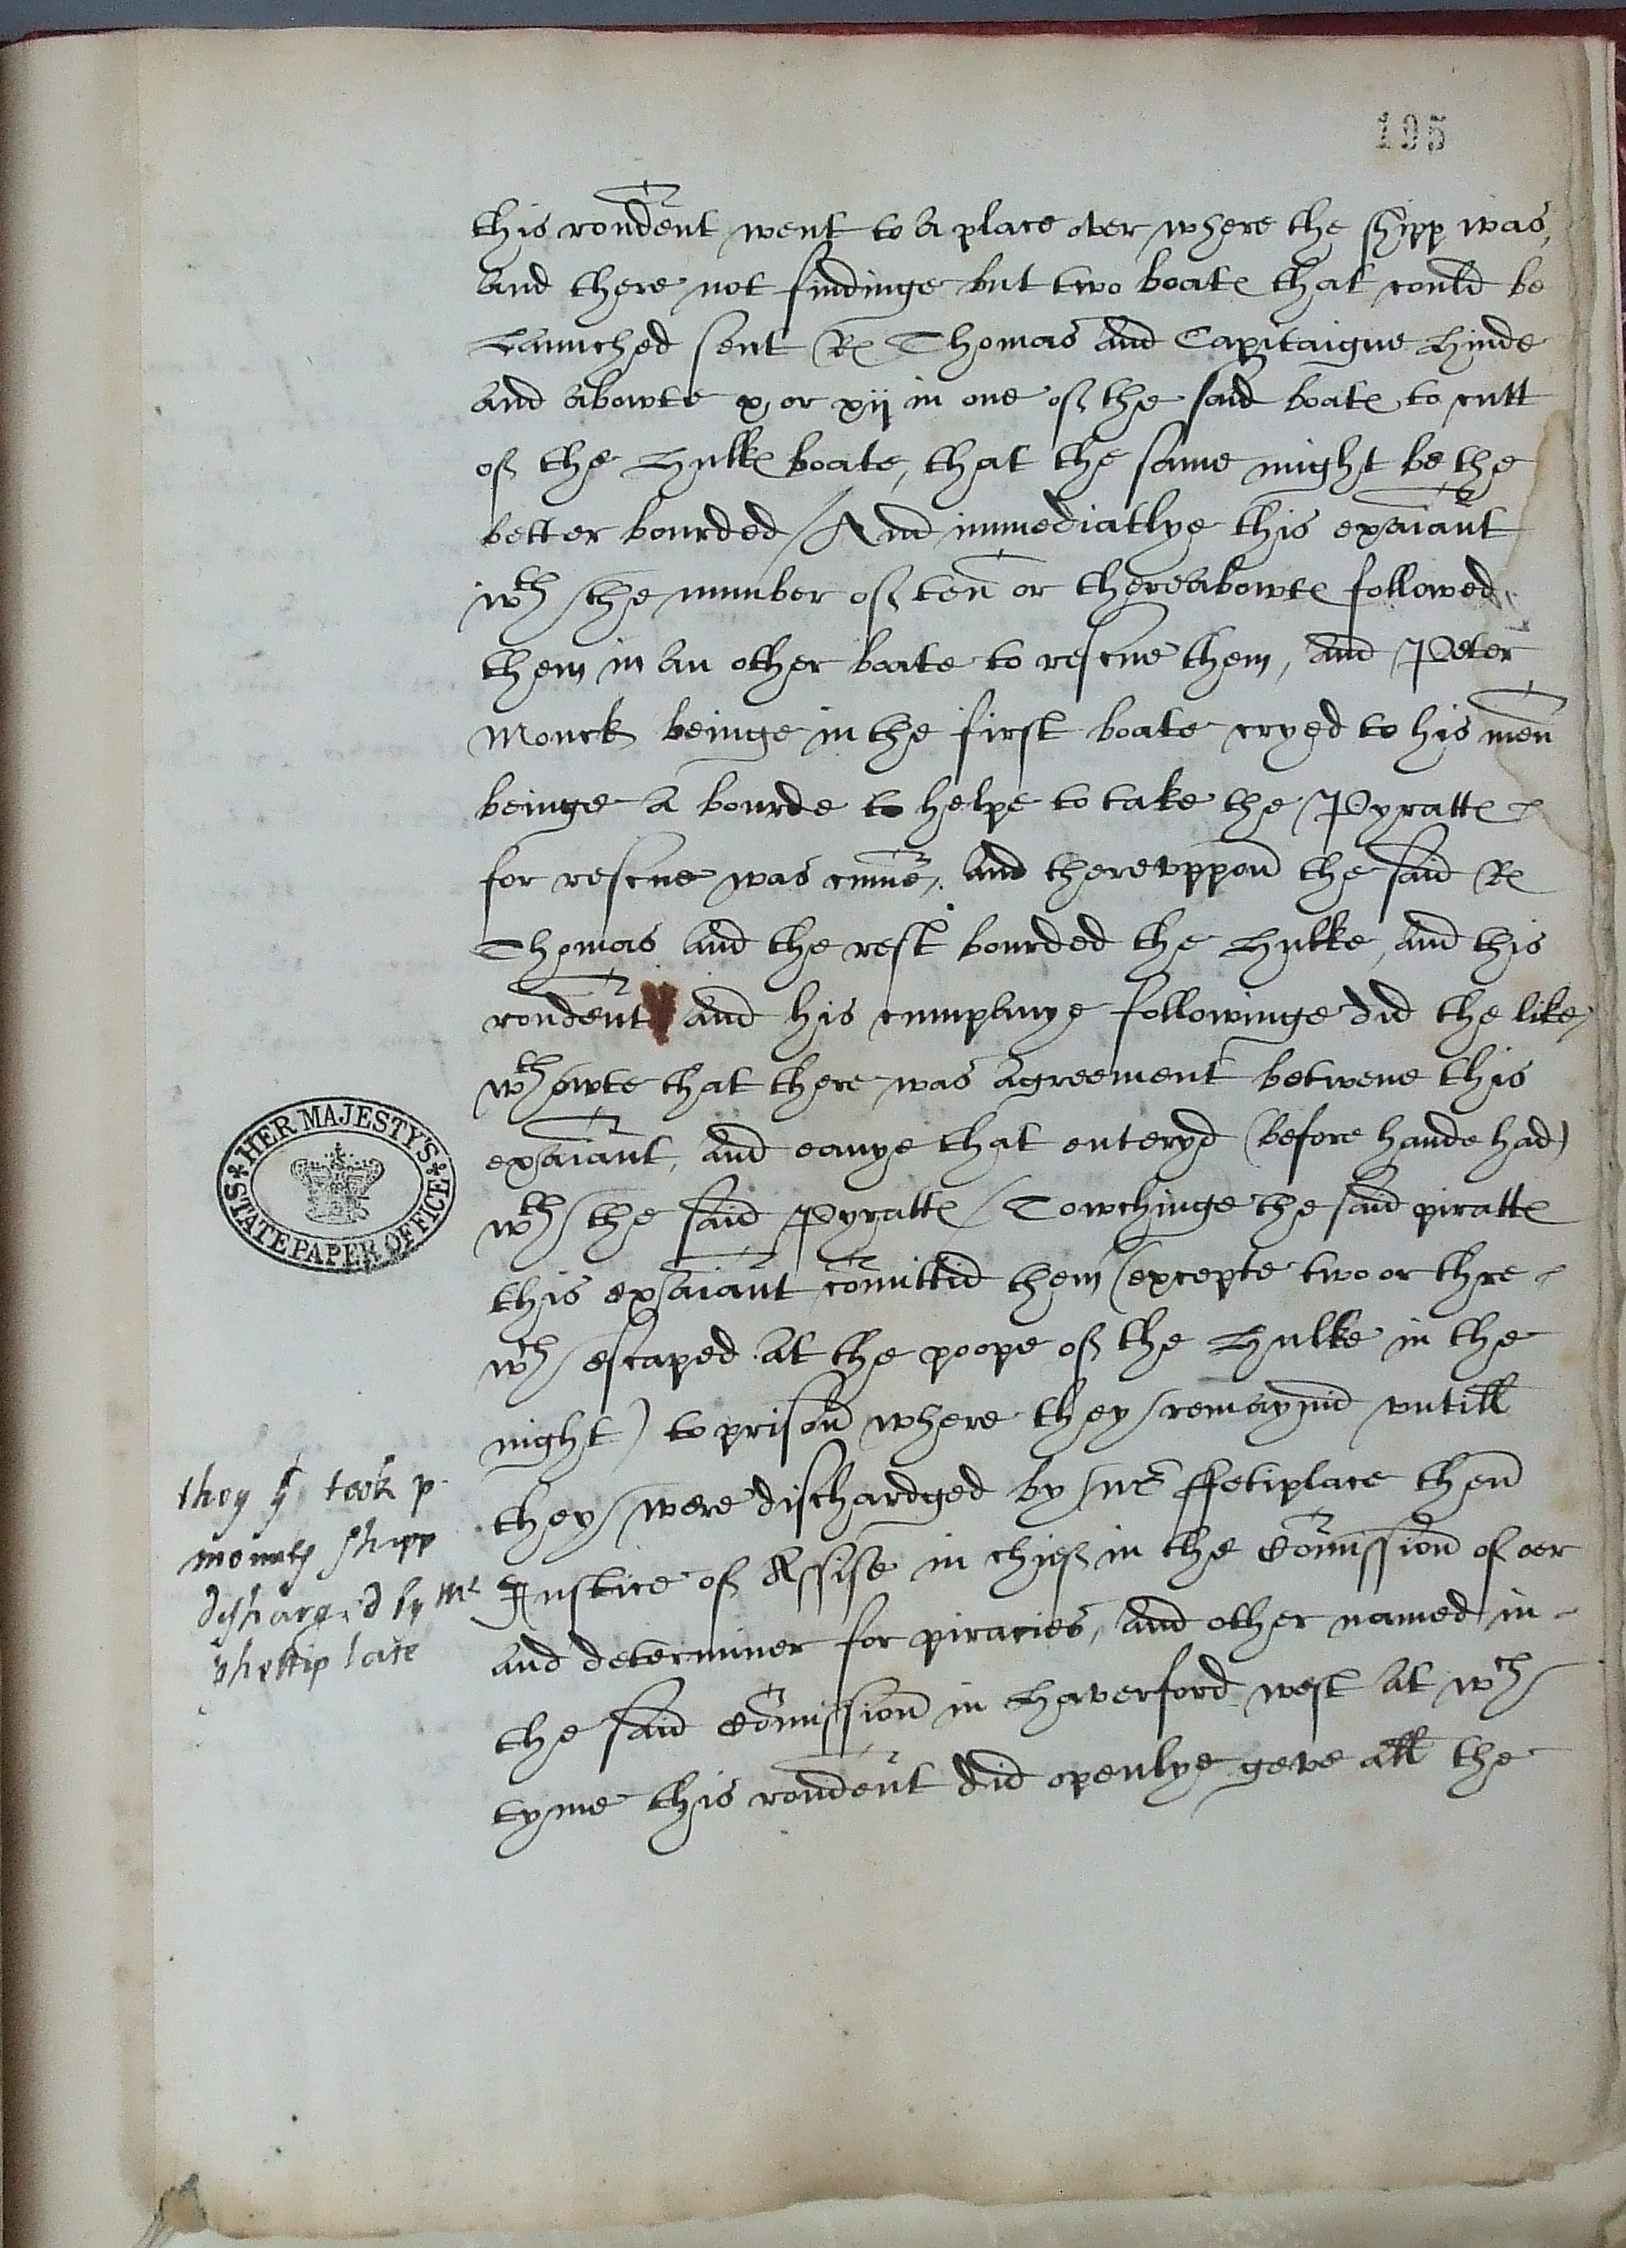 195
this rondent went to a place over where the shipp was,
and there not findinge but two boates that could be
Launched sent Ric Thomas and Capitaigne Hinde
and abowte x, or xij in one of the said boates to cutt
of the Hulkes boate, that the same might be the
better bourded / And immediatlye this exaiant
wth the number of ten or thereabowtes followed
them in an other boate to rescue them, and Peter
Monck beinge in the first boate cryed to his men
beinge a bourde to helpe to take the Pyrattes
for rescue was cume, and thereuppon the said Ric
Thomas and the rest bourded the Hulke, and this
rondent and his cumpanye followinge did the like,
wthowte that there was agreement betwene this
exaiant, and eanye that enteryd (before hande had)
wth the said Pyrattes / Towchinge the said pirattes
this exaiant comittid them (excepte two or thre
wch escaped at the poope of the Hulke in the
night) to prison where they remaynid untill
they were dischardged by mr ffetiplace then
Justice of Assise in chief in the Comission of oer
and determiner for piracies, and other named in
the said Comission in Haverford west at wch
tyme this rondent did openlye geve all the
HER MAJESTY'S
STATE PAPER OFFICE
they yt took p
mounks shipp
dischargid by mr
phettiplace